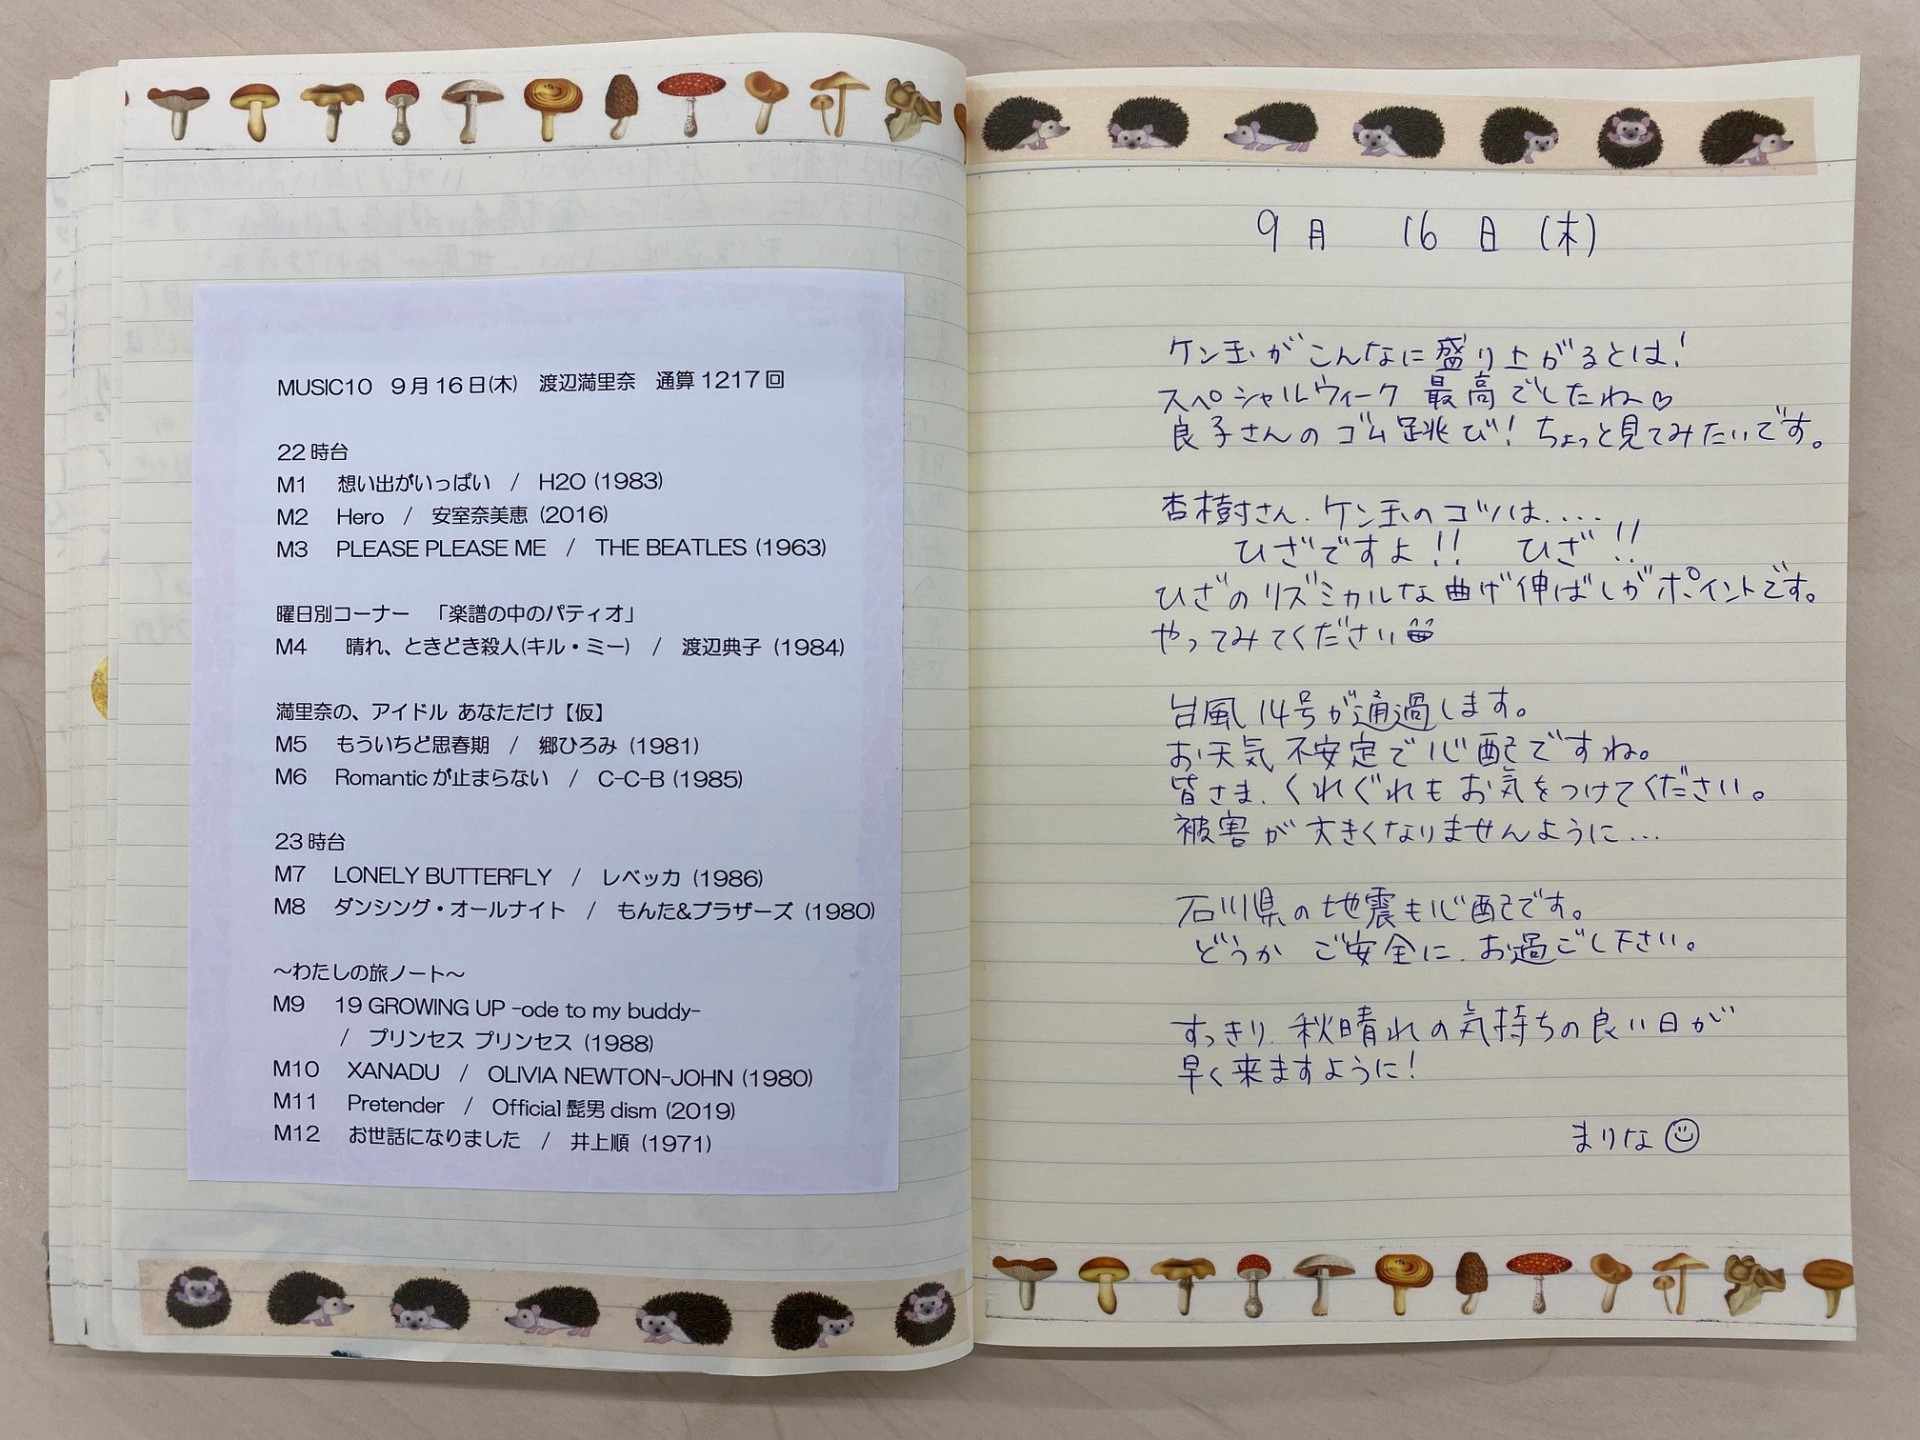 MUSIC10 9月16日(木) 渡辺満里奈 通算1217回
22時台
M1 想い出がいっぱい / H2O (1983)
M2 Hero / 安室奈美恵 (2016)
M3 PLEASE PLEASE ME / THE BEATLES (1963)
曜日別コーナー 「楽譜の中のパティオ」
M4 晴れ、ときどき殺人(キル・ミー) / 渡辺典子 (1984)
満里奈の、アイドル あなただけ【仮】
M5 もういちど思春期 / 郷ひろみ (1981)
M6 Romanticが止まらない / C-C-B (1985)
23時台
M7 LONELY BUTTERFLY / レベッカ (1986)
M8 ダンシング・オールナイト / もんた&ブラザーズ (1980)
～わたしの旅ノート～
M9 19 GROWING UP -ode to my buddy-
/ プリンセス プリンセス (1988)
M10 XANADU / OLIVIA NEWTON-JOHN (1980)
M11 Pretender / Official髭男dism (2019)
M12 お世話になりました / 井上順 (1971)
9月 16日 (木)
ケン玉がこんなに盛り上がるとは!
スペシャルウィーク 最高でしたね♡
良子さんのゴム跳び! ちょっと見てみたいです。
杏樹さん、ケン玉のコツは....
ひざですよ!! ひざ!!
ひざのリズミカルな曲げ伸ばしがポイントです。
やってみてください
台風14号が通過します。
お天気 不安定で心配ですね。
皆さま、くれぐれもお気をつけてください。
被害が大きくなりませんように...
石川県の地震も心配です。
どうか ご安全に、お過ごし下さい。
すっきり、秋晴れの気持ちの良い日が
早く来ますように!
まりな☺